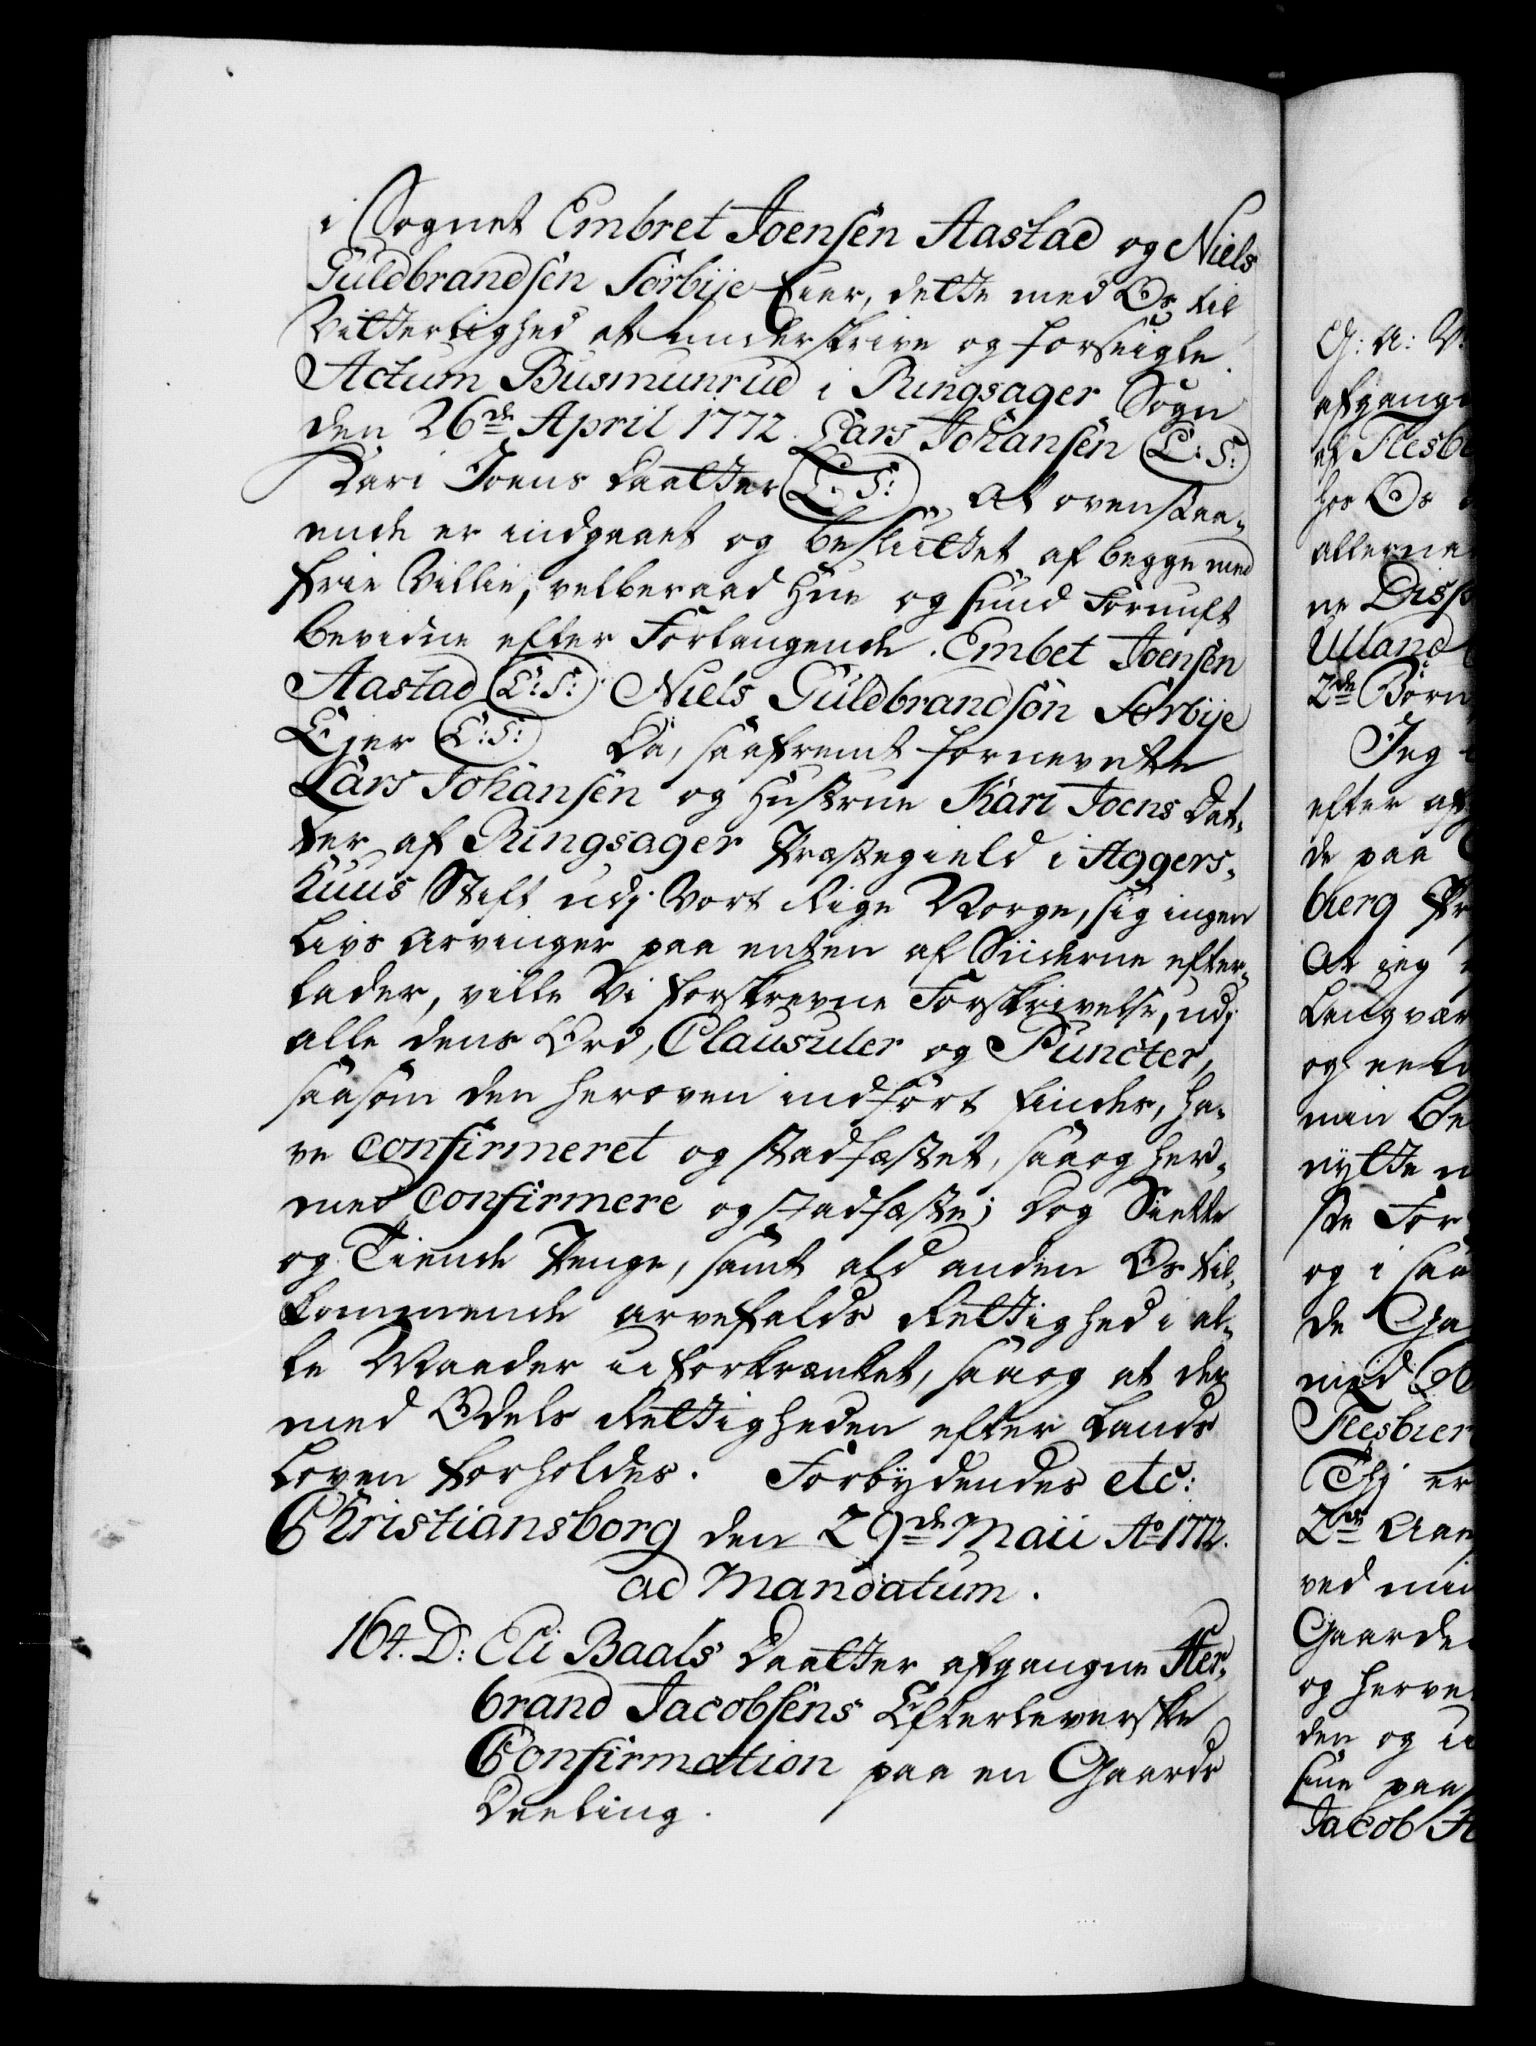 i Sognet Embret Joensen Aastad og Niels
Guldbrandsen Sørbije Eier, dette med Os til
Vitterlighed at underskrive og forseigle.
Actum Busmunrud i Ringsager Sogn
den 26de April 1772. Lars Johansen (L:S:)
Kari Joens Daatter (L:S:) At ovenstaa-
ende er indgaaet og besluttet af begge med
frie Villie, velberaad Hue og sund Fornuft
bevidne efter Forlangende. Embet Joensen
Aastad (L:S:) Niels Guldbrandsøn Sørbije
Ejer (L:S:) Da, saafremt fornevnte
Lars Johansen og Hustrue Kari Joens Dat-
ter af Ringsager Præstegield i Aggers-
huus Stift udj Vort Rige Norge, sig ingen
Livs Arvinger paa enten af Siiderne efter-
lader, ville Vi forskrevne Forskrivelse, udj
alle dens Ord, Clausuler og Puncter,
saasom den heroven indført findes, ha-
ve confirmeret og stadfæstet, saa og her-
med confirmere og stadfæste; Dog Siette
og Tiende Penge, samt ald anden Os til-
kommende Arvefalds Rettighed i al-
le Maader uforkrænket, saa og at der
med Odels Rettigheden efter Lands
Loven forholdes. Forbydendes etc:
Christiansborg den 29de Maii Ao 1772.
ad Mandatum.
164. D: Eli Baals Daatter afgangne Her-
brand Jacobsens Efterleverske
Confirmation paa en Gaards
Deeling.
G: A: V:
afgangn
af Flesb
hos Os
allerna
ne Disp
Uland
2de Børn
Jeg
efter af
de paa
bierg Pr
At jeg
Langvær
og
min Be
nytte
ste For
og i saa
de Ga
med
Flesbier
Thj er
2de
ved min
Gaarde
og herve
den og
sine paa
Jacob